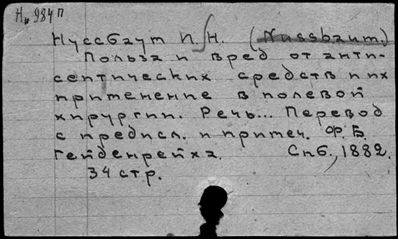 Н. 984 п
Нуссбаум И. Н. (Nussbaum)
Польза и вред от анти-
септических средств и их
применение в полевой
хирургии. Речь... Перевод
с предисл. и примеч. Ф. Б.
Гейденрейха. Спб., 1882.
34 стр.